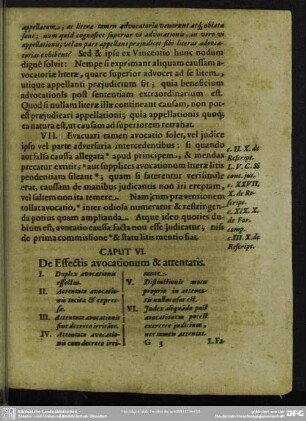 appellatum, ac literæ tamen advocatoriæ venerunt
sint; num quid cognoscet superior vi advocationis, an vero vi
appellationis; vel an pars appellans præjudicet sibi literas advoca-
torias exhibens? Sed & ipse ex Vincentio huic nodum
dignè solvit: Nempe si exprimant aliquam causam a-
vocatoriæ literæ, quare superior advocet ad se litem,
utique appellanti præjudicium fit; quia beneficium
advocationis post sententiam extraordinarium est.
Quod si nullam literæ ille contineant causam, non pot-
est præjudicari appellationi; quia appellationis quoq;
ea natura est, ut causam ad superiorem retrahat.
VII. Evacuari tamen avocatio solet, vel judice
ipso vel parte adversaria intercedentibus: si quando
aut falsa caussa allegata * apud principem, & mendax
precator extitit; * aut supplices avocationum literæ litis
pendentiam sileant *; quam si faterentur verisimile
erat, caussam de manibus judicantis non iri ereptam,
vel saltem non ita temerè. Nam cum præventionem
tollat avocatio, * inter odiosa numeratur & restringen-
da potius quam amplianda. Atque ideo quoties du-
bium est, avocatio causse facta non esse judicatur, nisi
de prima commissione * & statu litis mentio fiat.
c. II. X. de
Rescript.
L. F. C. Si
cont. jus.
c. XXVII.
X. de Re-
script.
c. XIX. X.
de For.
comp.
c. III. X. de
Rescript.
CAPUT VI.
De Effectis avocationum & attentatis.
I. Duplex avocationis
effectus.
II. Attentata avocatio-
nis tacita & expres-
sa.
III. Attentata avocationis
sine decreto irritata.
IV. Attentata avocatio-
nis cum decreto irri-
tante.
V. Distinctionis motu
proprio in avoca-
tis nullus usus est.
VI. Judex aliquando post
avocationem potest
exercere judicium,
nec tamen attentat.
G 3
I. Ex